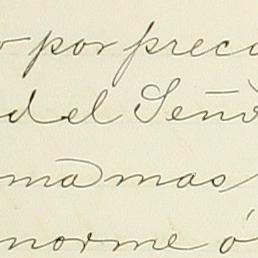 por preca
del Seño
ma mas
norme ó